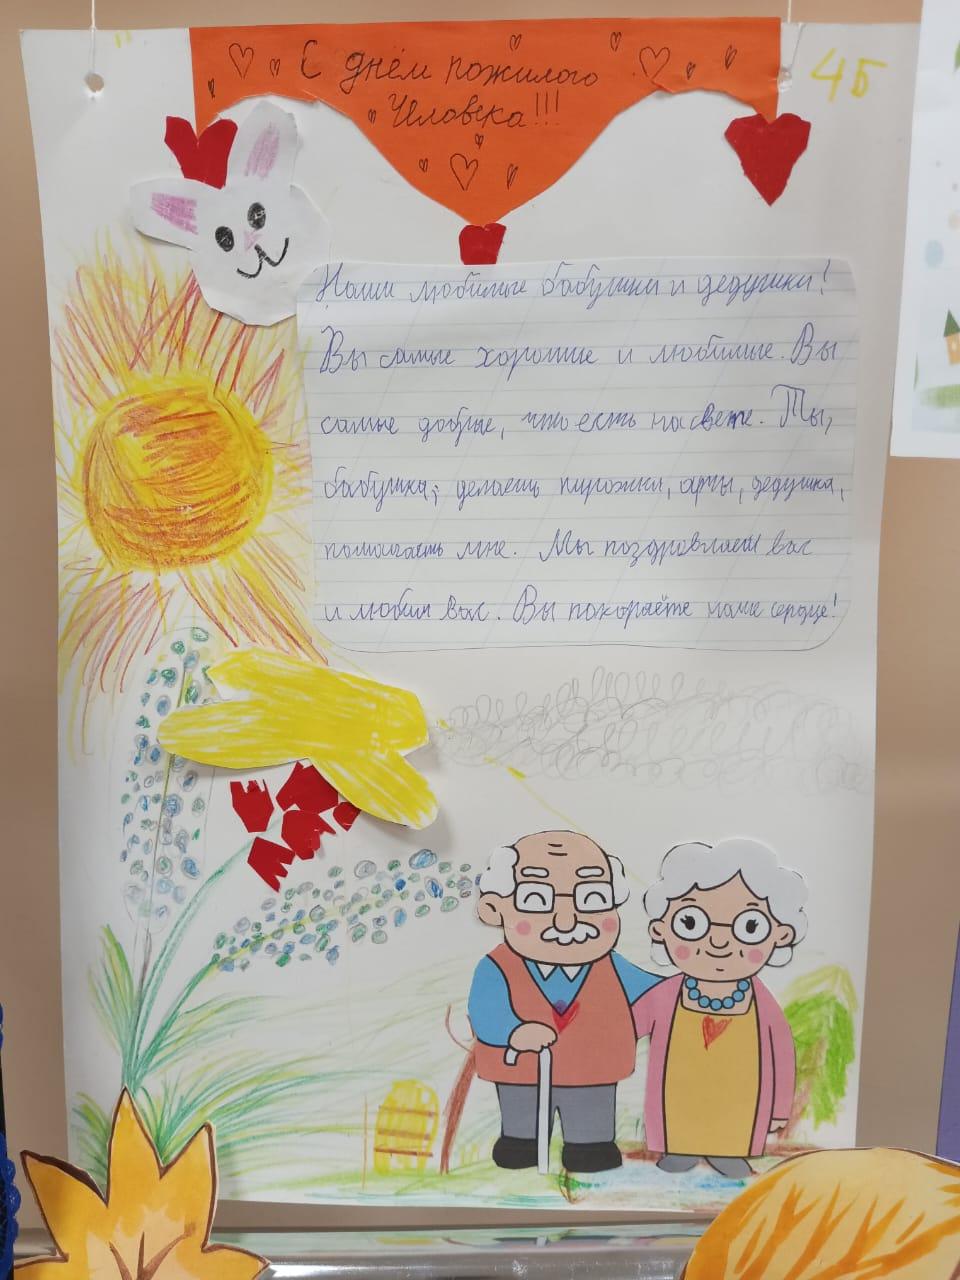 С днём пожилого
Человека!!!
4Б
Наши любимые бабушки и дедушки!
Вы самые хорошие и любимые. Вы
самые добрые, что есть на свете. Ты,
бабушка, делаешь пирожки, а ты, дедушка,
помогаешь мне. Мы поздровляем вас
и любим вас. Вы покоряете наше сердце!